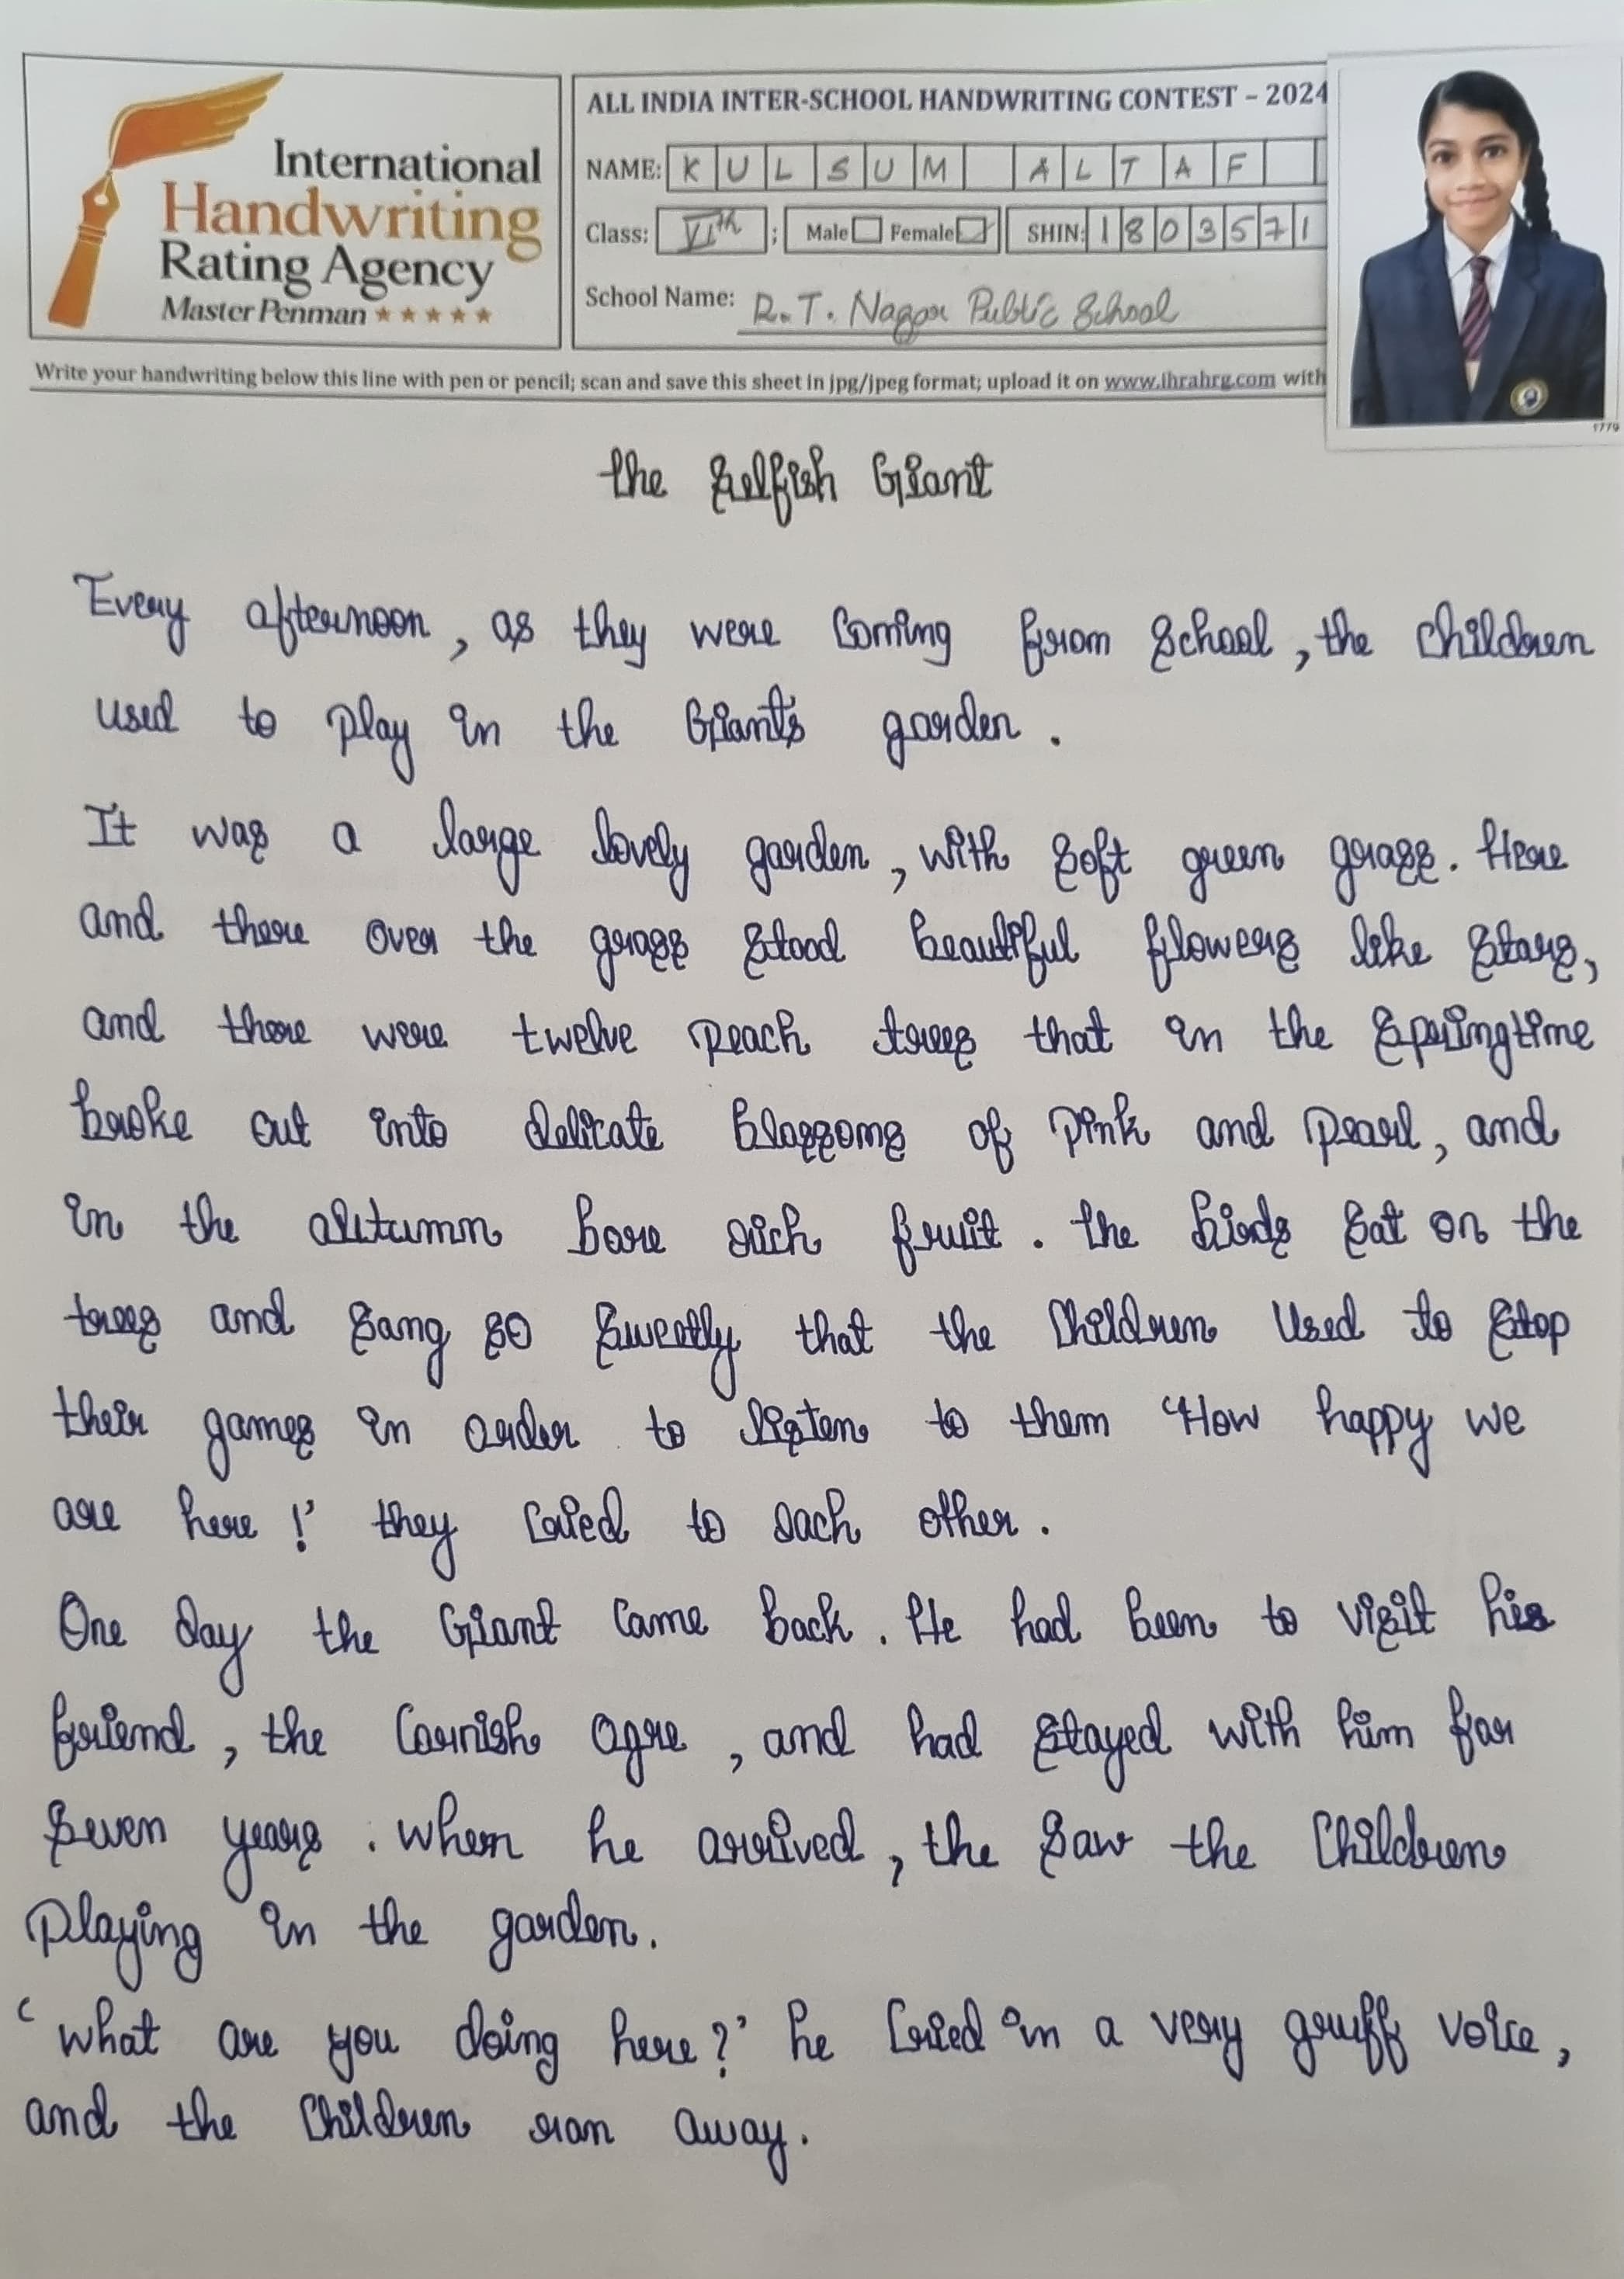 International
Handwriting
Rating Agency
Master Penman ★★★★★
ALL INDIA INTER-SCHOOL HANDWRITING CONTEST – 2024
NAME: KULSUM ALTAF
Class: VIth ; Male Female SHIN: 1803571
School Name: R.T. Nagar Public School
Write your handwriting below this line with pen or pencil; scan and save this sheet in jpg/jpeg format; upload it on www.ihrahrg.com with
1779
the Selfish Giant
Every afternoon, as they were Coming from School, the Children
used to play in the Giant's garden.
It was a large lovely garden, with Soft green grass. Here
and there over the grass Stood beautiful flowers like Stars,
and there were twelve peach trees that in the Springtime
broke out into delicate blossoms of pink and pearl, and
in the autumn bore rich fruit. the birds Sat on the
trees and Sang so Sweetly that the Children Used to Stop
their games in order to listen to them "How happy we
are here!' they Cried to each other.
One day the Giant Came back. He had been to visit his
friend, the Cornish Ogre, and had Stayed with him for
Seven years. when he arrived, the Saw the Children
Playing in the garden.
'what are you doing here?' he Cried in a very gruff voice,
and the Children ran away.